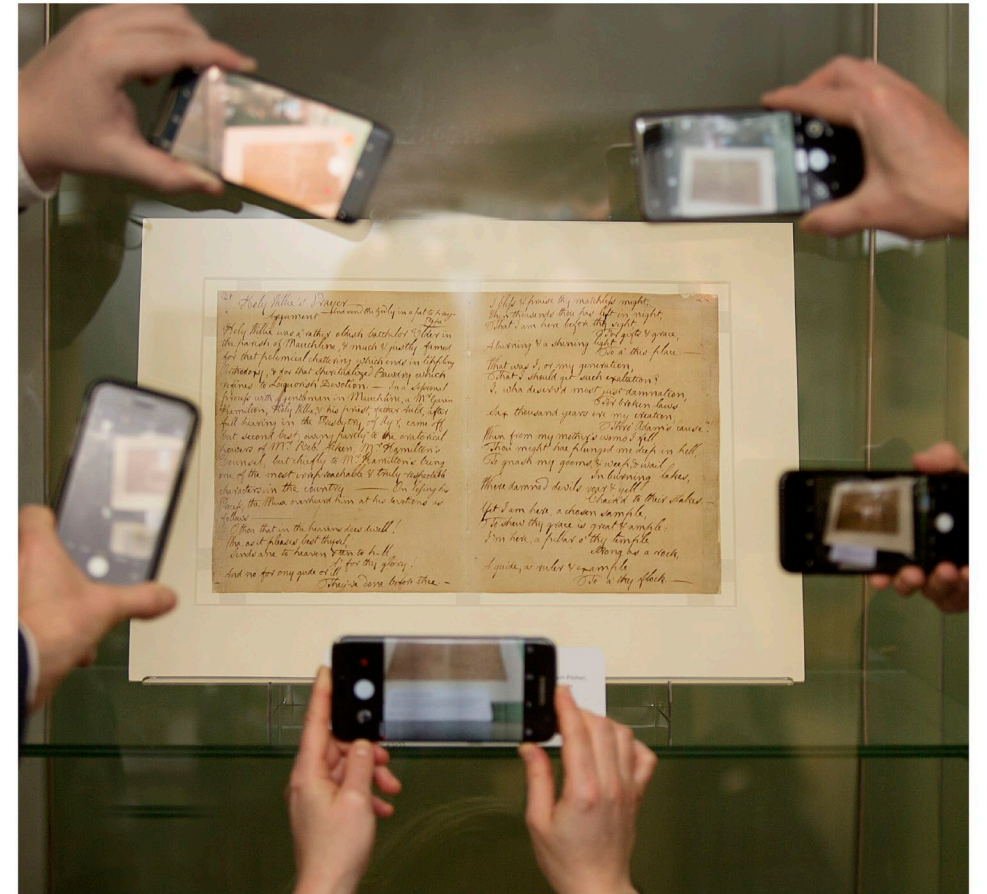 Holy Willie's Prayer —
Argument — And send the Godly in a pet to pray —
Pope
Holy Willie was a rather oldish batchelor Elder in
the parish of Mauchline, & much & justly famed
for that polemical chattering which ends in tippling
Orthodoxy, & for that Spiritualized Bawdry which
refines to Liquorish Devotion. — In a Sessional
process with a gentleman in Mauchline, a Mr Gavin
Hamilton, Holy Willie, & his priest, father Auld, after
full hearing in the Presbytry of Ayr, came off
but second best, owing partly to the oratorical
powers of Mr Robt Aiken, Mr Hamilton's
Counsel, but chiefly to Mr Hamilton's being
one of the most irreproachable & truly respectable
characters in the country — On losing his
Process, the Muse overheard him at his devotions as
follows —
O thou that in the heavens does dwell!
Wha as it pleases best thysel,
Sends ane to heaven & ten to h-ll,
A' for thy glory!
And no for ony gude or ill
They've done before thee —
I bless & praise thy matchless might,
Whan thousands thou has left in night,
That I am here before thy sight,
For gifts & grace,
A burning & a shining light
To a' this place —
What was I, or my generation,
That I should get such exaltation?
I, wha deserv'd most just damnation,
For broken laws
Sax thousand years ere my creation
Thro' Adam's cause!
When from my mother's womb I fell,
Thou might hae plunged me deep in hell,
To gnash my gooms, & weep, & wail,
In burning lakes,
Where damned devils roar & yell
Chain'd to their stakes —
Yet I am here, a chosen sample,
To shew thy grace is great & ample:
I'm here, a pillar o' thy temple
Strong as a rock,
A guide, a ruler & example
To a' thy flock —